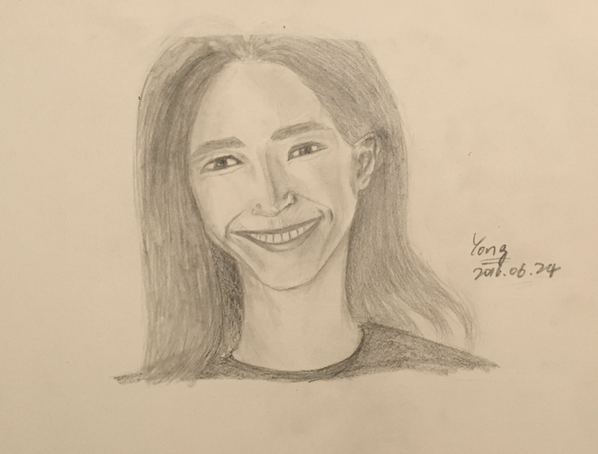 Yong
2016.06.24